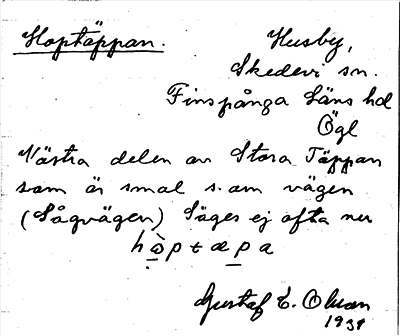 Hoptäppan.
Husby,
Skedevi sn.
Finspånga läns hd
Ögl
Västra delen av Stora Täppan
som är smal s. om vägen
(Sågvägen) Säges ej ofta nu
hòptæpa
Gustaf E. Olsson